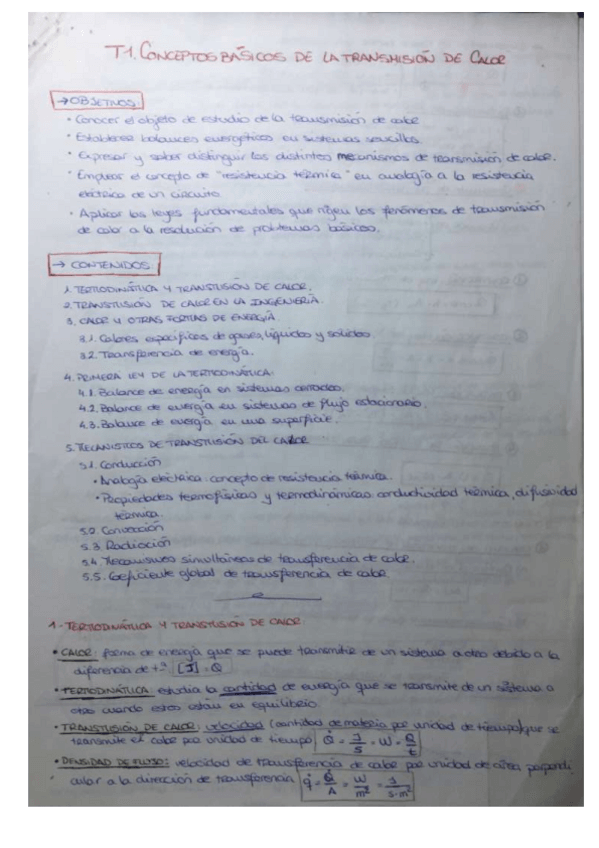 T1. CONCEPTOS BÁSICOS DE LA TRANSMISIÓN DE CALOR
→ OBJETIVOS:
• Conocer el objeto de estudio de la transmisión de calor
• Establecer balances energéticos en sistemas sencillos
• Expresar y saber distinguir los distintos mecanismos de transmisión de calor.
• Emplear el concepto de "resistencia térmica" en analogía a la resistencia
eléctrica de un circuito
• Aplicar las leyes fundamentales que rigen los fenómenos de transmisión
de calor a la resolución de problemas básicos.
→ CONTENIDOS:
1. TERMODINÁMICA Y TRANSMISIÓN DE CALOR.
2. TRANSMISIÓN DE CALOR EN LA INGENIERÍA.
3. CALOR Y OTRAS FORMAS DE ENERGÍA
3.1. Calores específicos de gases, líquidos y sólidos
3.2. Transferencia de energía.
4. PRIMERA LEY DE LA TERMODINÁMICA.
4.1. Balance de energía en sistemas cerrados.
4.2. Balance de energía en sistemas de flujo estacionario.
4.3. Balance de energía en una superficie.
5. MECANISMOS DE TRANSMISIÓN DEL CALOR
5.1. Conducción
• Analogía eléctrica: concepto de resistencia térmica.
• Propiedades termofísicas y termodinámicas: conductividad térmica, difusividad
térmica.
5.2. Convección
5.3 Radiación
5.4 Mecanismos simultáneos de transferencia de calor.
5.5. Coeficiente global de transferencia de calor.
1.- TERMODINÁMICA Y TRANSMISIÓN DE CALOR
• CALOR: forma de energía que se puede transmitir de un sistema a otro debido a la
diferencia de tª [J] = Q
• TERMODINÁMICA: estudia la cantidad de energía que se transmite de un sistema a
otro cuando estos están en equilibrio.
• TRANSMISIÓN DE CALOR: velocidad (cantidad de materia por unidad de tiempo) que se
transmite el calor por unidad de tiempo Q̇ = J/s = W = Q/t
• DENSIDAD DE FLUJO: velocidad de transferencia de calor por unidad de área perpendi
cular a la dirección de transferencia q̇ = Q̇/A = W/m² = J/s·m²